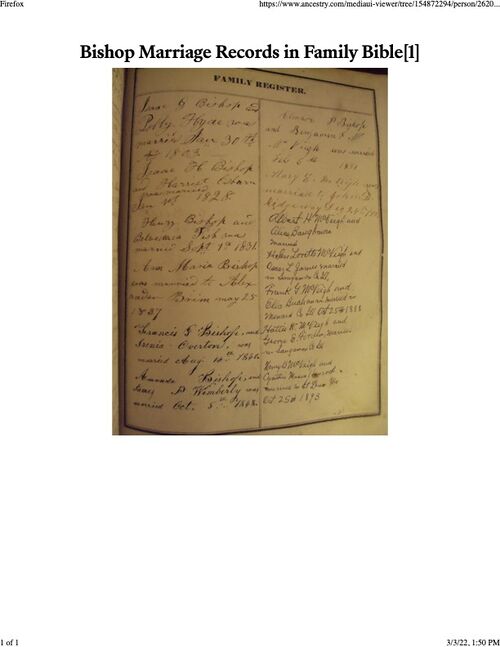 Firefox
https://www.ancestry.com/mediaui-viewer/tree/154872294/person/2620...
Bishop Marriage Records in Family Bible[1]
FAMILY REGISTER.
Isaac G Bishop and
Polly Hyde was
married Jan 30th
1803
Isaac H Bishop
and Harriet
was married
Jan 1st 1828
Henry Bishop and
Fish was
married Sept 1st 1831
Ann Maria Bishop
was married to Alex
ander Brim may 25
1837
Francis G Bishop, and
Overton, was
married Aug. 10th 1860.
Amanda Bishop, and
Isaac P Wimberly was
married Oct. 5th 1868.
Eleanor P Bishop
and Benjamin F Mc
Veigh was married
Feb
Mary E. McVeigh was
married to John D.
Ridgeway Dec 24th
Albert H McVeigh and
Alice Baughman
married
Helen Lovette McVeigh and
L James married
in Sangamon Co Ill,
Frank G McVeigh and
Buchanan married in
Menard Co Ill Oct 25th 1888
Hattie R McVeigh and
George E married
in Sangamon Co Ill
Henry B McVeigh and
married in St
Oct 25th 1893
1 of 1
3/3/22, 1:50 PM